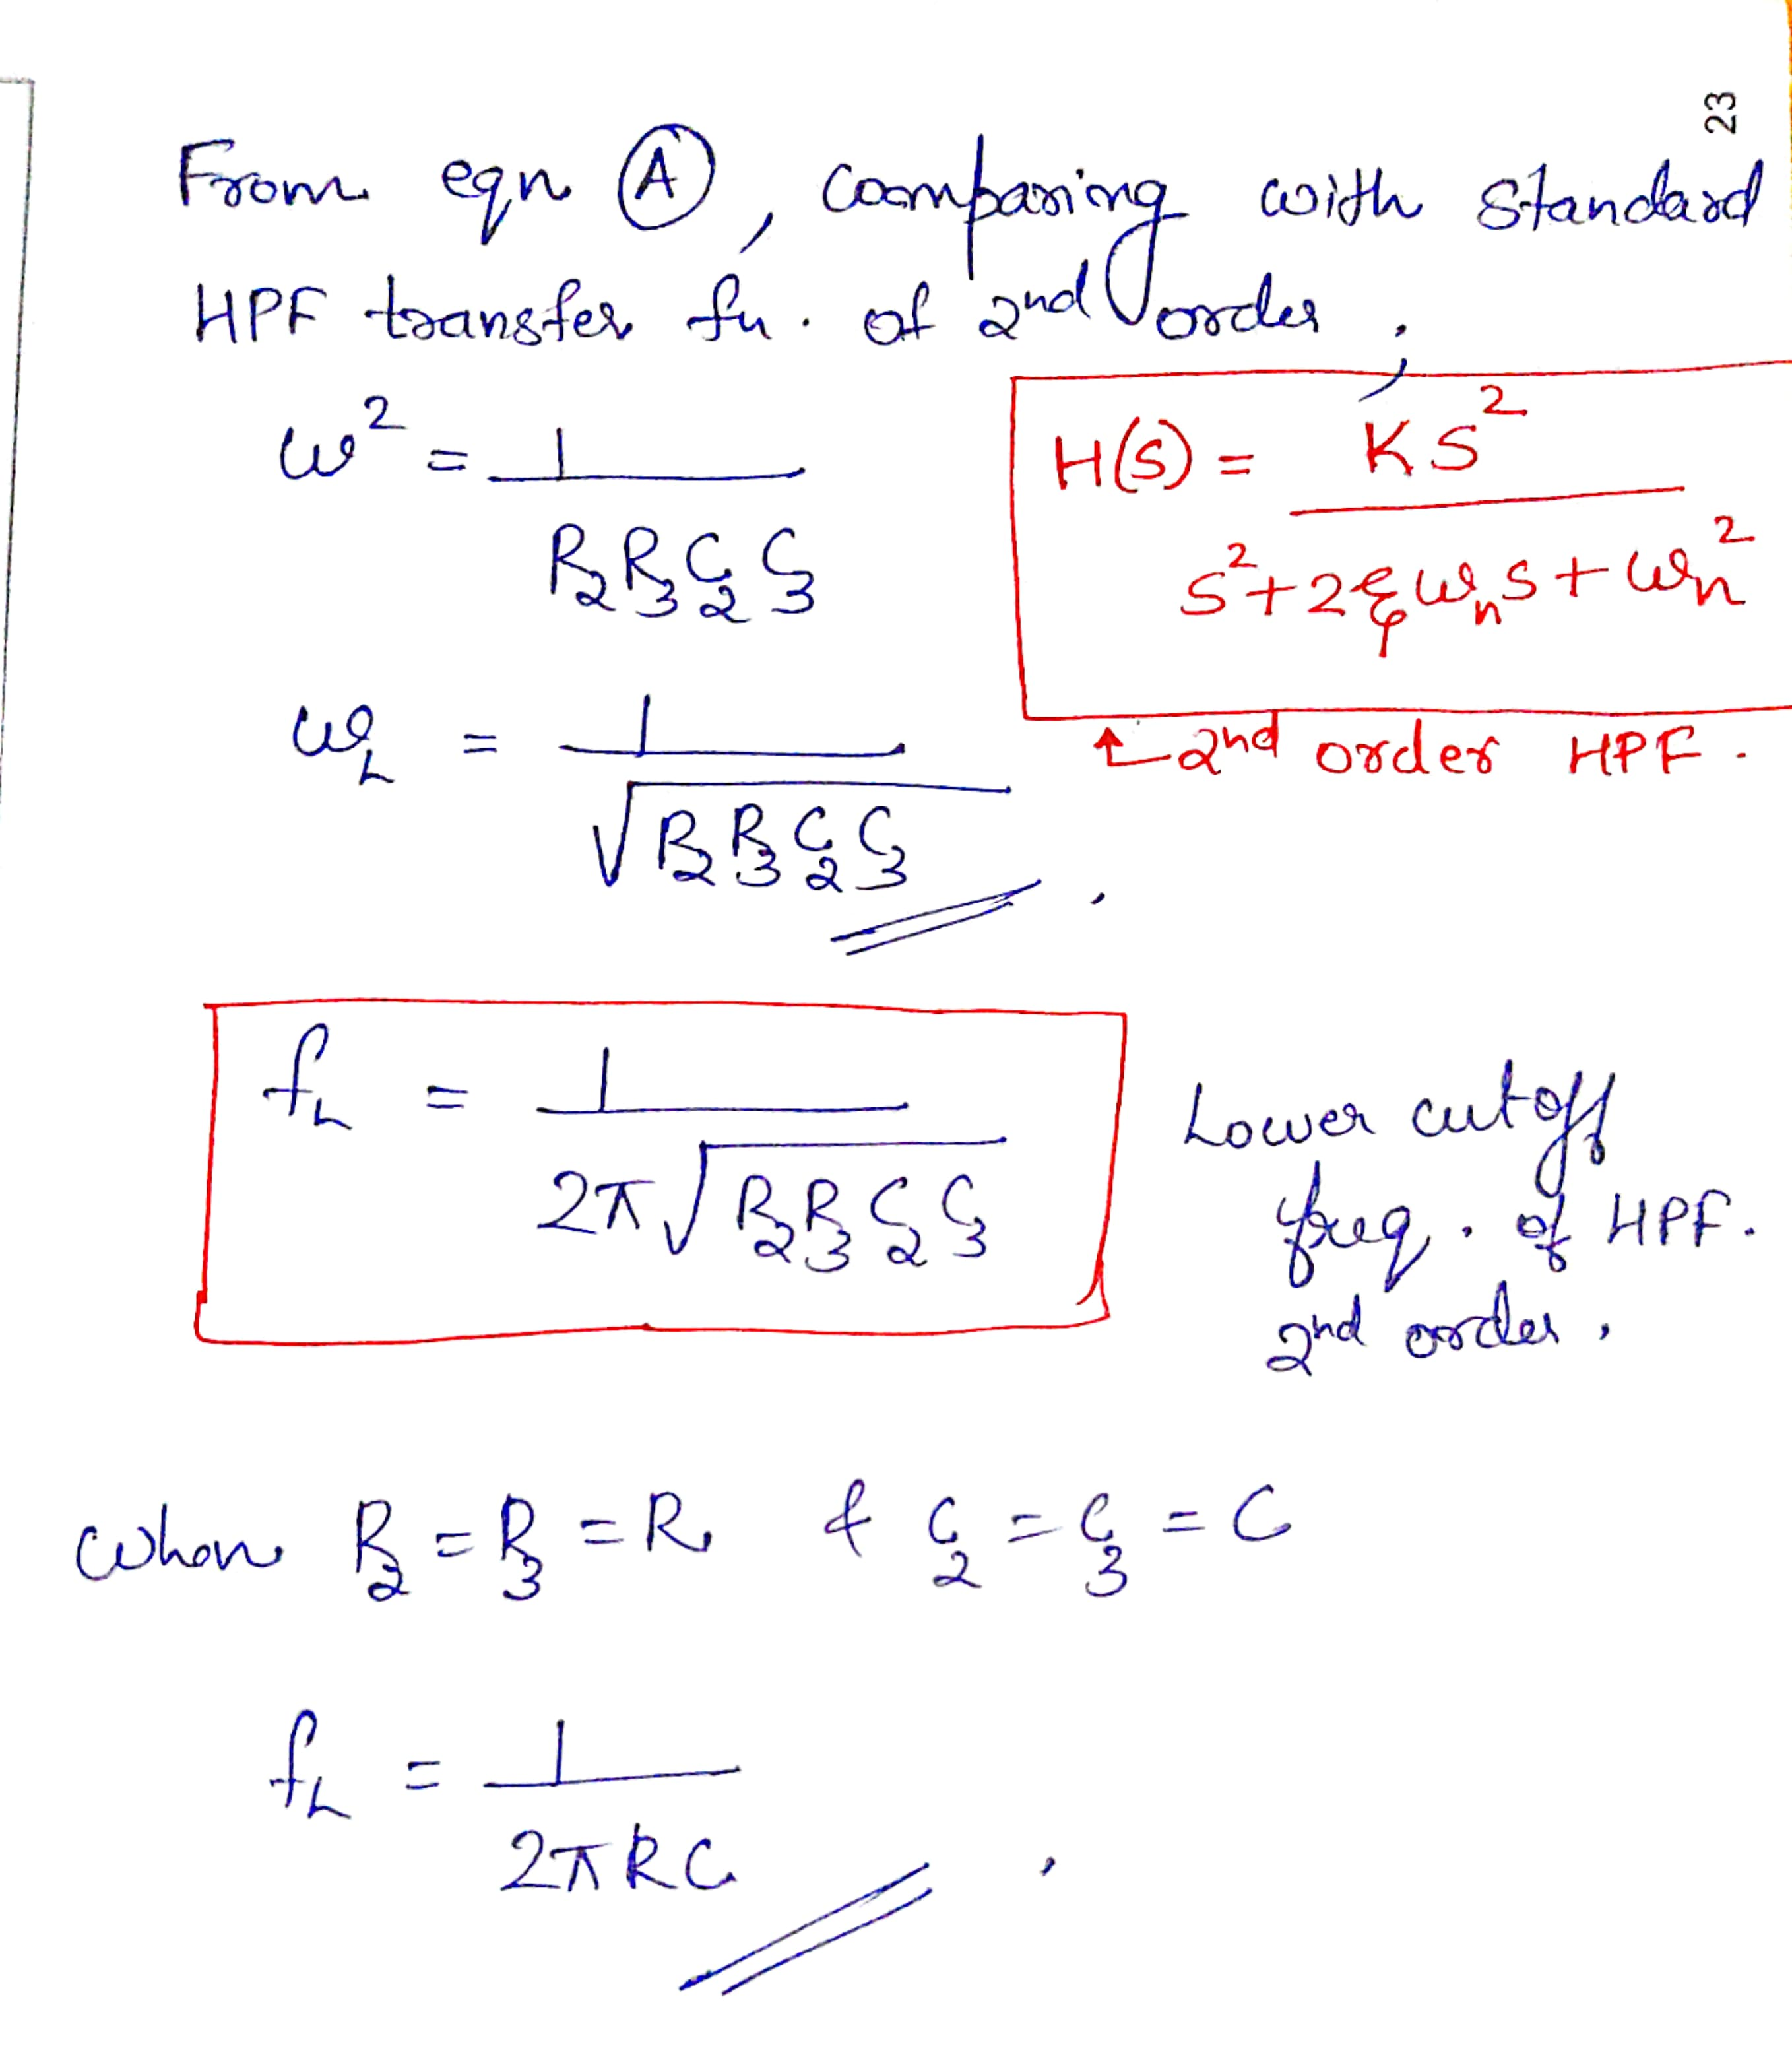 23
From eqn (A), comparing with standard
HPF transfer fn. of 2nd order ;
ω² = 1 / R₂R₃C₂C₃
H(s) = KS² / S² + 2ξωₙS + ωₙ²
↑ 2nd order HPF.
ω_L = 1 / √R₂R₃C₂C₃ .
f_L = 1 / 2π√R₂R₃C₂C₃
Lower cutoff
freq. of HPF.
2nd order.
When R₂ = R₃ = R & C₂ = C₃ = C
f_L = 1 / 2πRC .